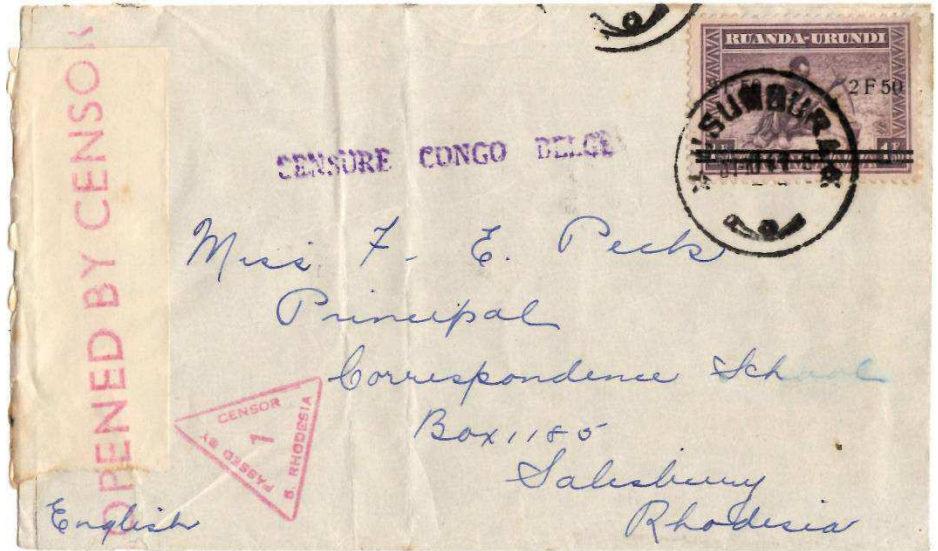 OPENED BY CENSOR
RUANDA-URUNDI
2 F 50
USUMBURA
CENSURE CONGO BELGE
Miss F. E. Peck
Principal
Correspondence School
Box 1185
Salisbury
Rhodesia
PASSED BY
CENSOR
1
S. RHODESIA
English